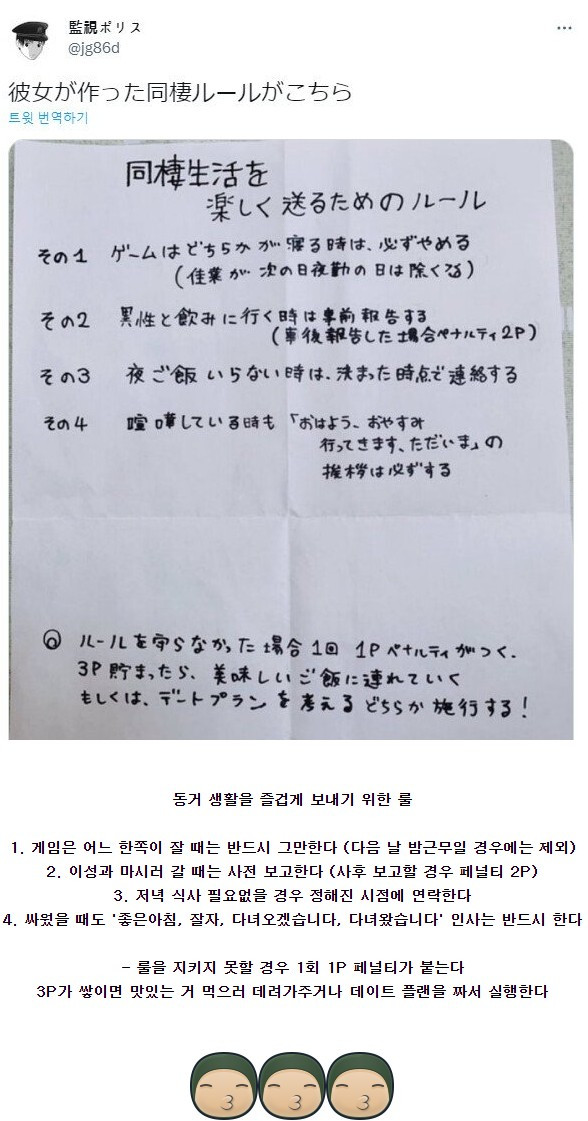 監視ポリス
@jg86d
彼女が作った同棲ルールがこちら
트윗 번역하기
同棲生活を
楽しく送るためのルール
その1 ゲームはどちらかが寝る時は、必ずやめる
(佳業が次の日夜勤の日は除くる)
その2 異性と飲みに行く時は事前報告する
(事後報告した場合ペナルティ2P)
その3 夜ご飯いらない時は、決まった時点で連絡する
その4 喧嘩している時も「おはよう、おやすみ
行ってきます、ただいま」の
挨拶は必ずする
ルールを守らなかった場合1回 1Pペナルティがつく.
3P貯まったら、美味しいご飯に連れていく
もしくは、デートプランを考えるどちらか施行する!
동거 생활을 즐겁게 보내기 위한 룰
1. 게임은 어느 한쪽이 잘 때는 반드시 그만한다 (다음 날 밤근무일 경우에는 제외)
2. 이성과 마시러 갈 때는 사전 보고한다 (사후 보고할 경우 페널티 2P)
3. 저녁 식사 필요없을 경우 정해진 시점에 연락한다
4. 싸웠을 때도 '좋은아침, 잘자, 다녀오겠습니다, 다녀왔습니다' 인사는 반드시 한다
- 룰을 지키지 못할 경우 1회 1P 페널티가 붙는다
3P가 쌓이면 맛있는 거 먹으러 데려가주거나 데이트 플랜을 짜서 실행한다